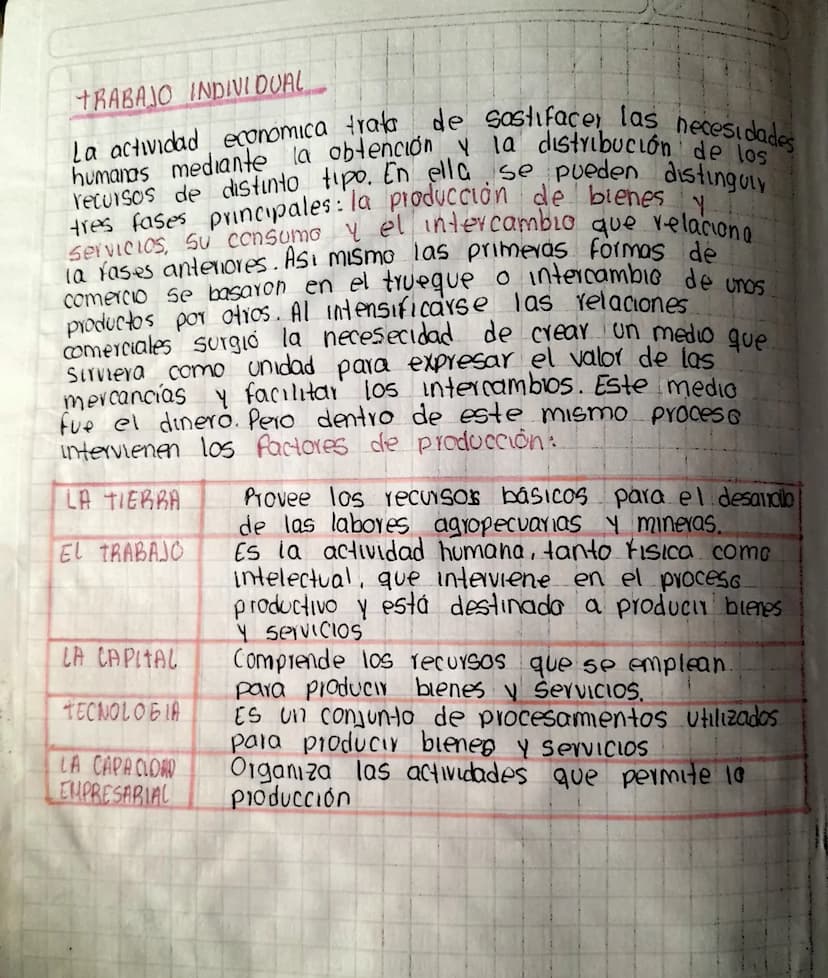 TRABAJO INDIVIDUAL
La actividad económica trata de sastifacer las necesidades
humanas mediante la obtención y la distribución de los
recursos de distinto tipo. En ella se pueden distinguir
tres fases principales: la producción de bienes y
servicios, su consumo y el intercambio que relaciona
la fases anteriores. Asi mismo las primeras formas de
comercio se basaron en el trueque o intercambio de unos
productos por otros. Al intensificarse las relaciones
comerciales surgió la necesecidad de crear un medio que
sirviera como unidad para expresar el valor de las
mercancías y facilitar los intercambios. Este medio
fue el dinero. Pero dentro de este mismo proceso
intervienen los factores de producción:
LA TIERRA Provee los recursos básicos para el desarrollo
de las labores agropecuarias y mineras.
EL TRABAJO Es la actividad humana, tanto física como
intelectual, que interviene en el proceso
productivo y está destinado a producir bienes
y servicios
LA CAPITAL Comprende los recursos que se emplean
para producir bienes y servicios.
TECNOLOGIA Es un conjunto de procesamientos utilizados
para producir bienes y servicios
LA CAPACIDAD Organiza las actividades que permite la
EMPRESARIAL producción